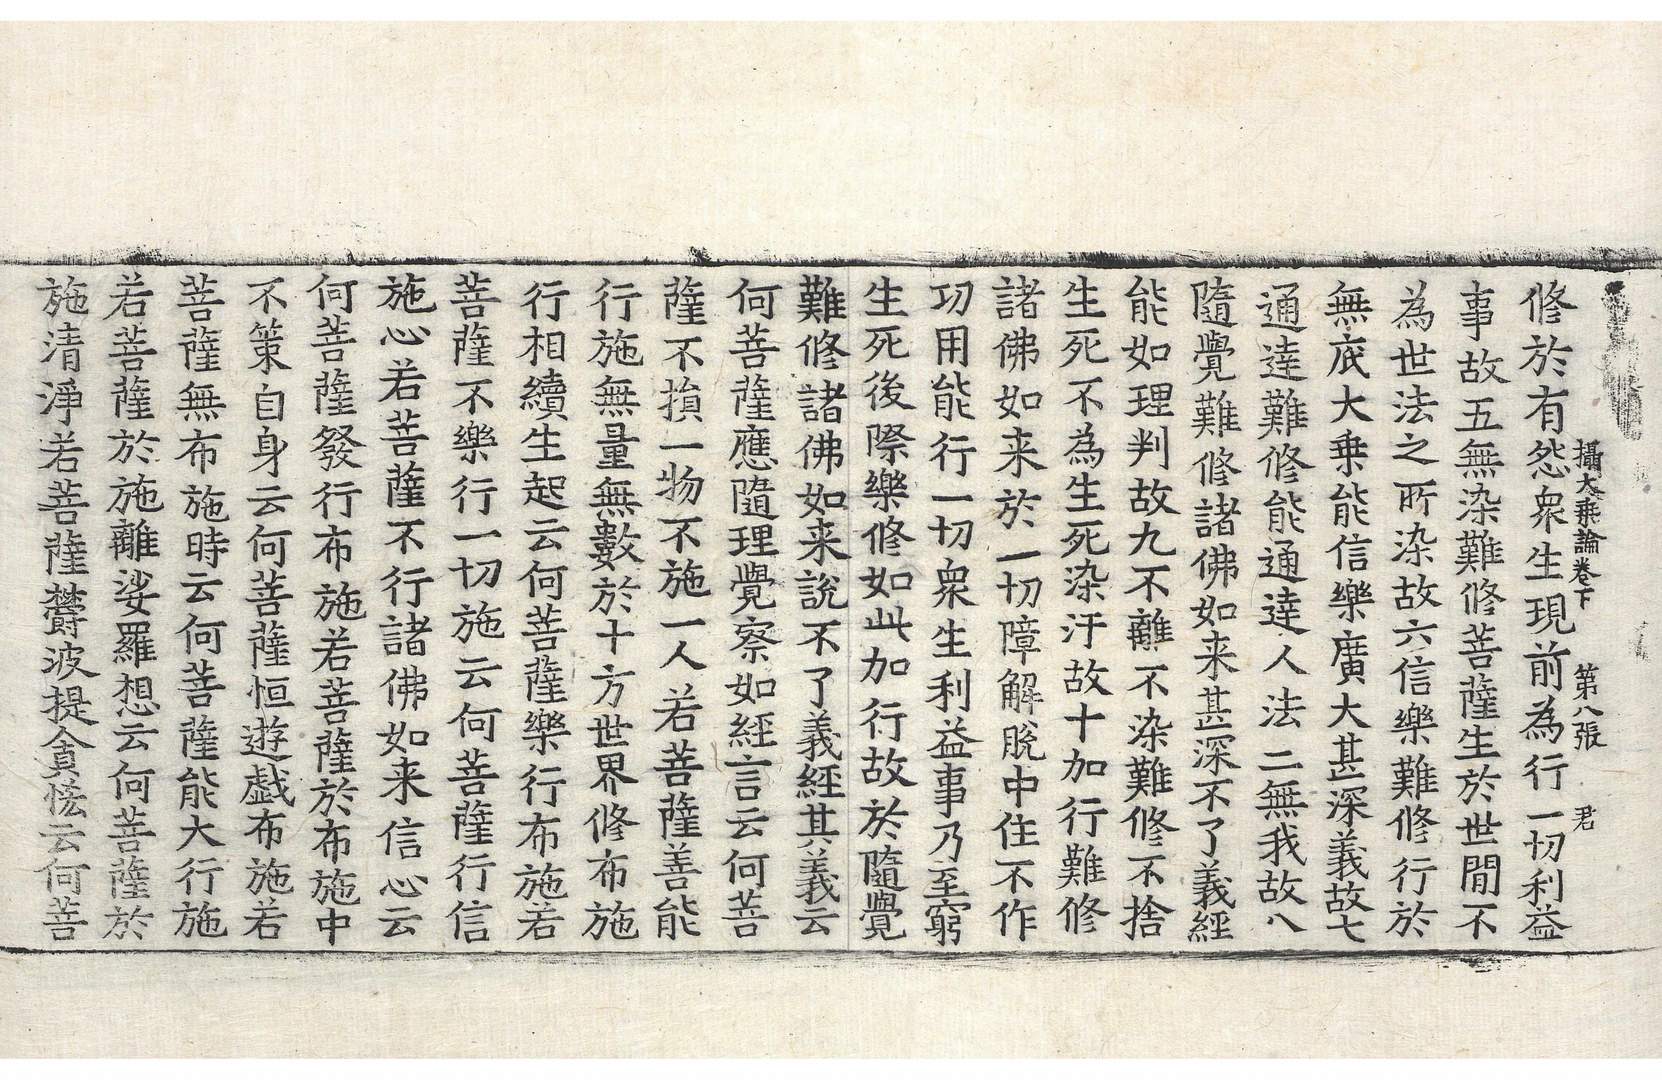 攝大乗論卷下　第八張　君
修於有怨衆生現前為行一切利益
事故五無染難修菩薩生於世間不
為世法之所染故六信樂難修行於
無底大乗能信樂廣大甚深義故七
通達難修能通達人法二無我故八
隨覺難修諸佛如来甚深不了義經
能如理判故九不離不染難修不捨
生死不為生死染汙故十加行難修
諸佛如来於一切障解脫中住不作
功用能行一切衆生利益事乃至窮
生死後際樂修如此加行故於隨覺
難修諸佛如来說不了義經其義云
何菩薩應隨理覺察如經言云何菩
薩不損一物不施一人若菩薩善能
行施無量無數於十方世界修布施
行相續生起云何菩薩樂行布施若
菩薩不樂行一切施云何菩薩行信
施心若菩薩不行諸佛如来信心云
何菩薩發行布施若菩薩於布施中
不策自身云何菩薩恒遊戲布施若
菩薩無布施時云何菩薩能大行施
若菩薩於施離娑羅想云何菩薩於
施清淨若菩薩欝波提貪恡云何菩